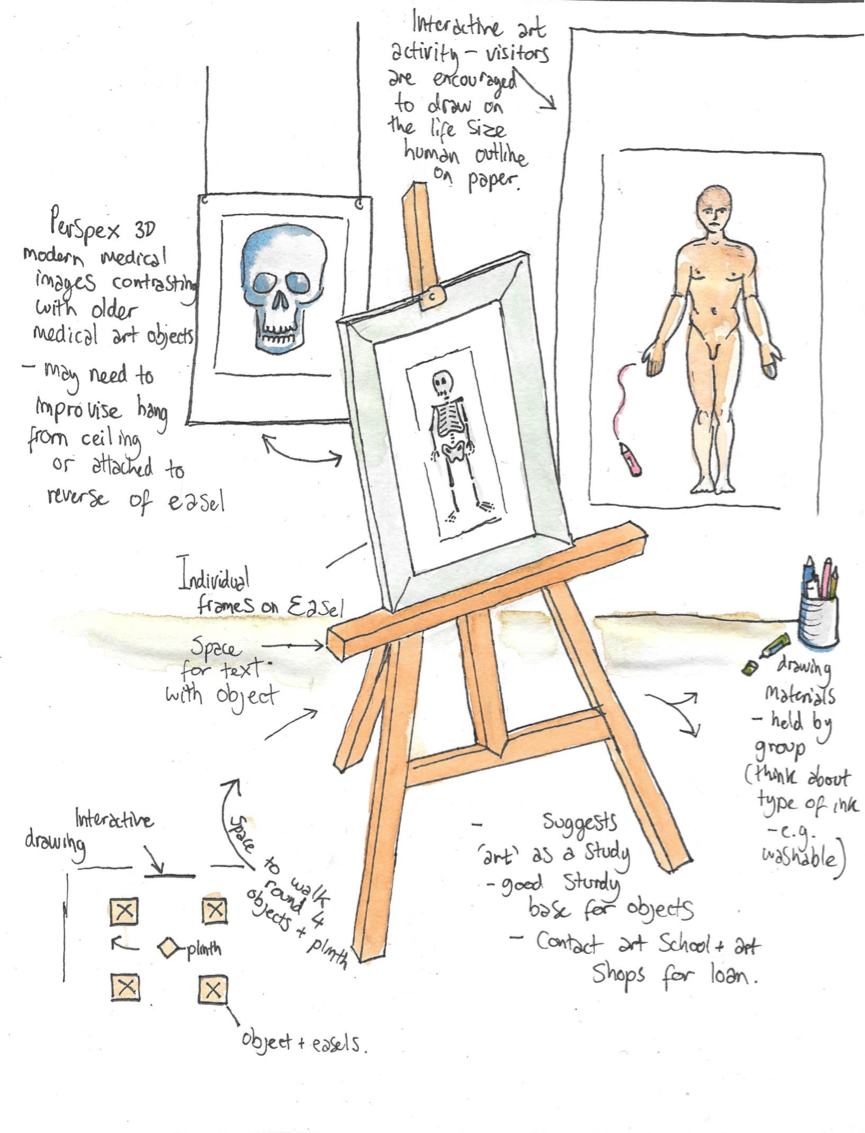 Interactive art
activity - visitors
are encouraged
to draw on
the life size
human outline
on paper.
Perspex 3D
modern medical
images contrasting
with older
medical art objects
- may need to
improvise hang
from ceiling
or attached to
reverse of easel
Individual
frames on Easel
Space
for text
with object
drawing
materials
- held by
group
(think about
type of ink
- e.g.
washable)
Interactive
drawing
Space to walk
round 4
objects + plinth
plinth
object + easels.
- Suggests
'art' as a study
- good sturdy
base for objects
- Contact art School + art
Shops for loan.